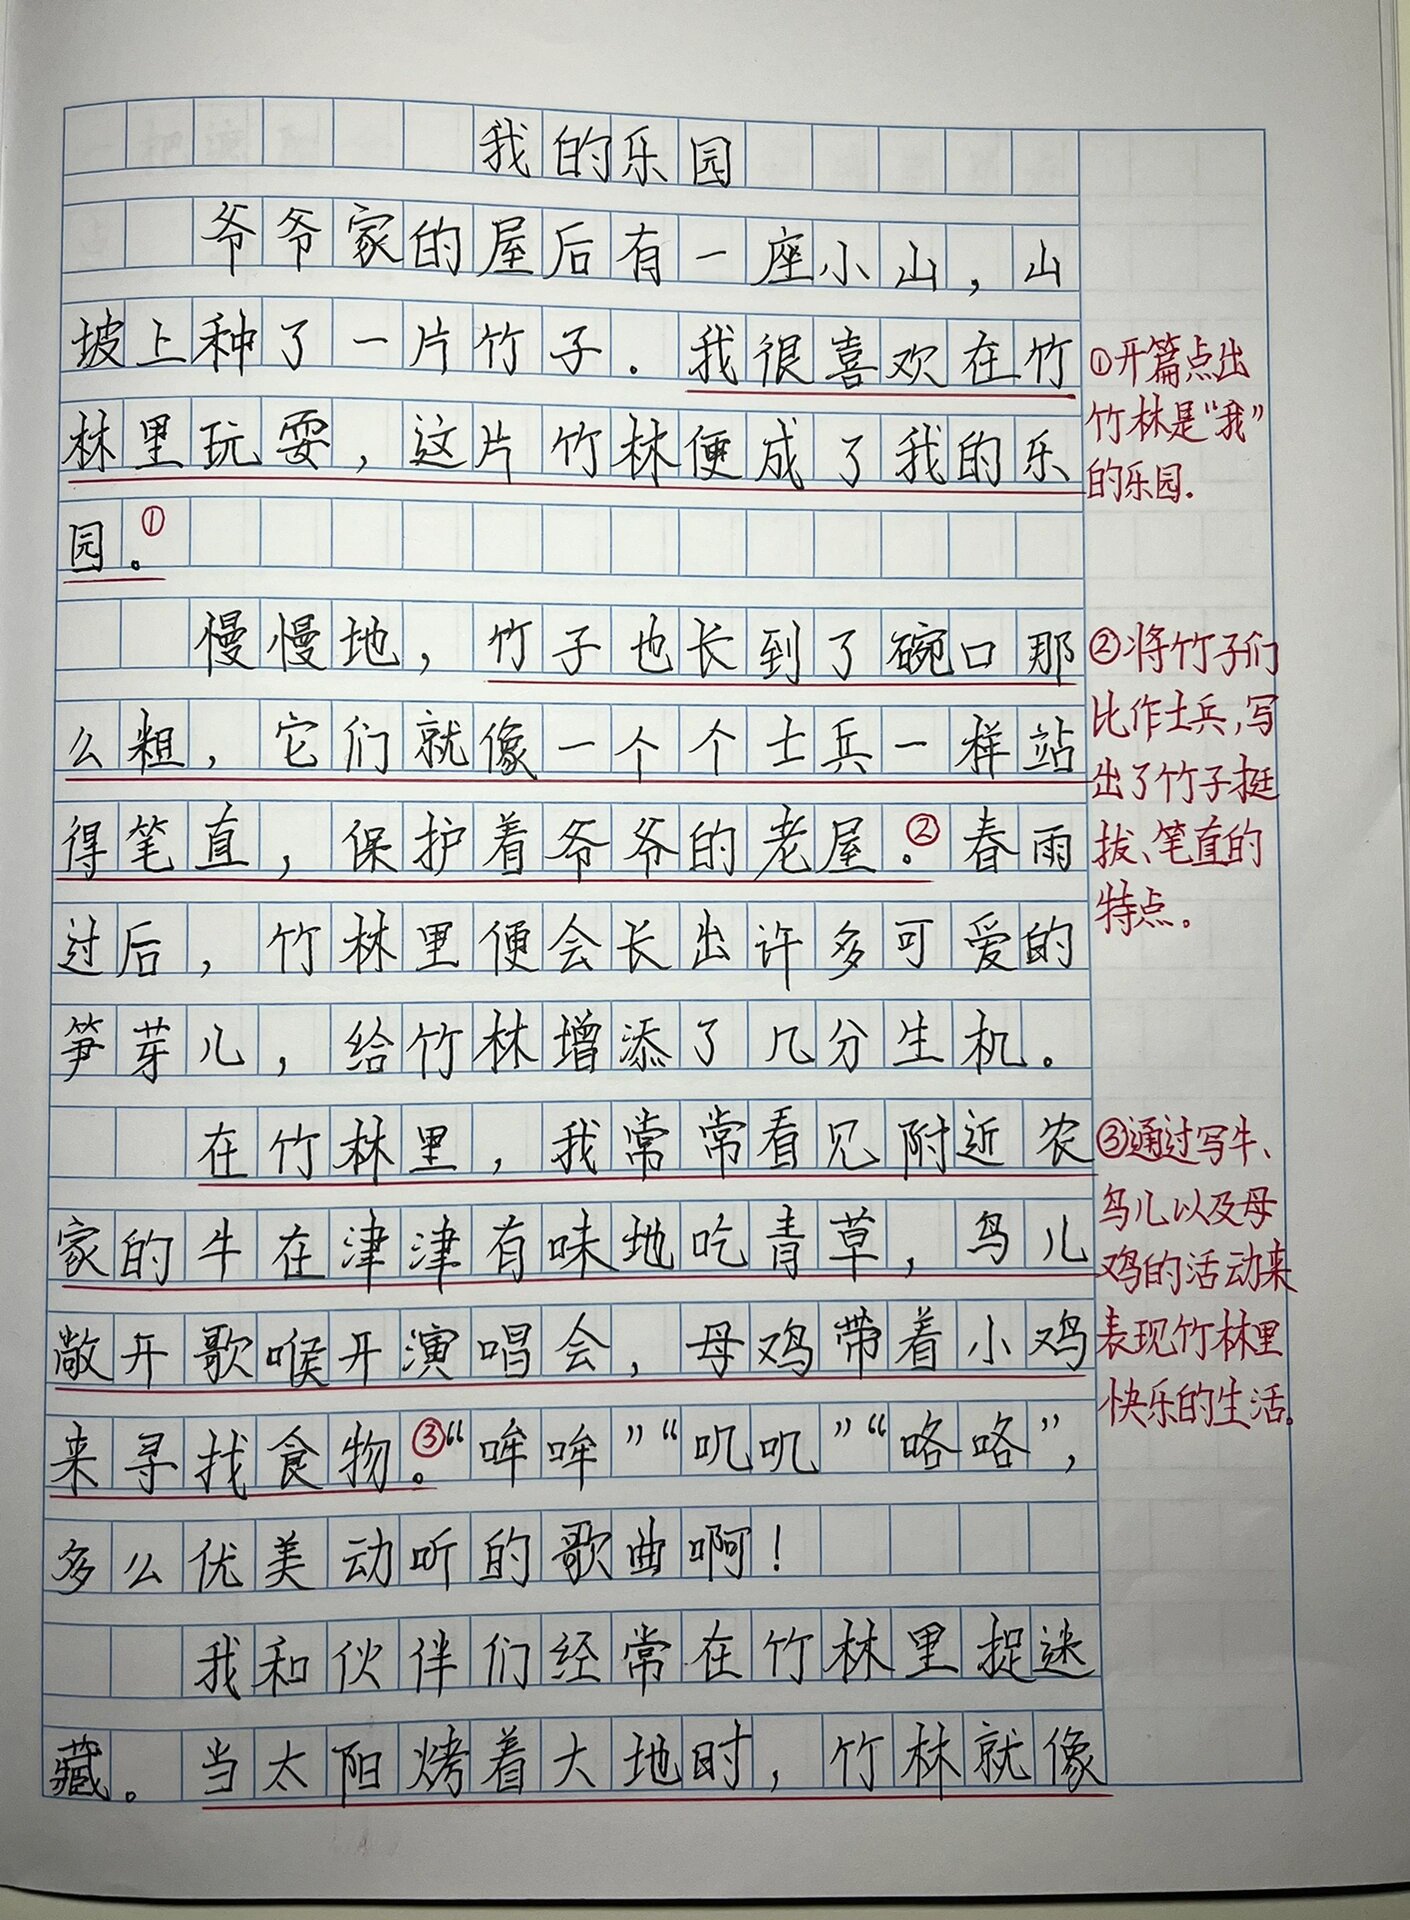 我的乐园
爷爷家的屋后有一座小山，山
坡上种了一片竹子。我很喜欢在竹
林里玩耍，这片竹林便成了我的乐
园。①
慢慢地，竹子也长到了碗口那
么粗，它们就像一个个士兵一样站
得笔直，保护着爷爷的老屋。②春雨
过后，竹林里便会长出许多可爱的
笋芽儿，给竹林增添了几分生机。
在竹林里，我常常看见附近农
家的牛在津津有味地吃青草，鸟儿
敞开歌喉开演唱会，母鸡带着小鸡
来寻找食物。③“哞哞”“叽叽”“咯咯”，
多么优美动听的歌曲啊！
我和伙伴们经常在竹林里捉迷
藏。当太阳烤着大地时，竹林就像
①开篇点出
竹林是“我”
的乐园.
②将竹子们
比作士兵，写
出了竹子挺
拔、笔直的
特点。
③通过写牛、
鸟儿以及母
鸡的活动来
表现竹林里
快乐的生活。